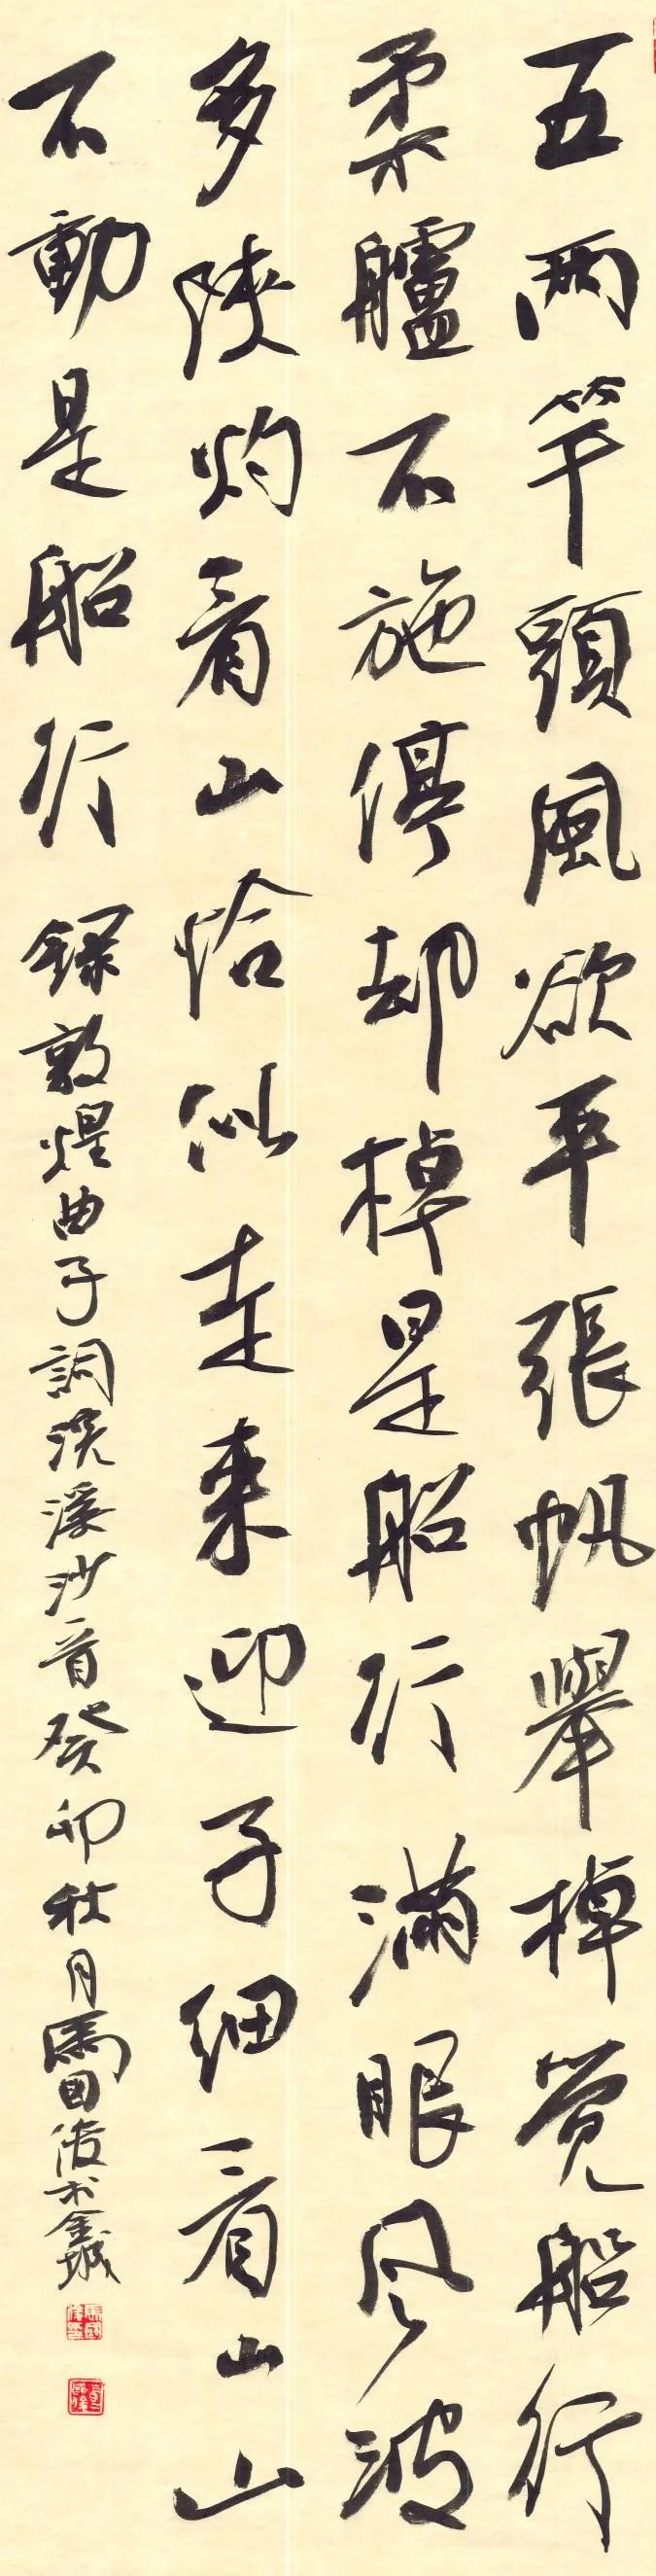 五兩竿頭風欲平張帆舉棹觉船行
柔艫不施停却棹是船行滿眼风波
多陕灼看山恰似走来迎子細看山山
不動是船行 録敦煌曲子詞浣溪沙一首癸卯秋月馬国俊於金城